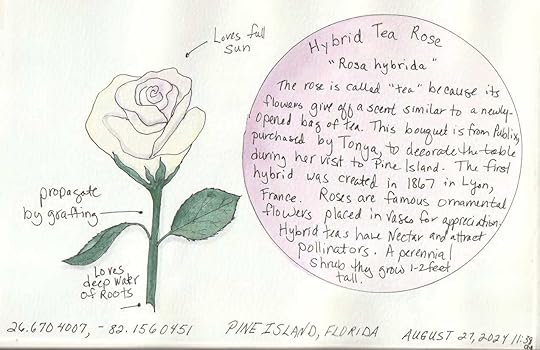 Loves full
sun
propagate
by grafting
Loves
deep water
of Roots
Hybrid Tea Rose
"Rosa hybrida"
The rose is called "tea" because its
flowers give off a scent similar to a newly-
opened bag of tea. This bouquet is from Publix,
purchased by Tonya, to decorate the table
during her visit to Pine Island. The first
hybrid was created in 1867 in Lyon,
France. Roses are famous ornamental
flowers placed in vases for appreciation.
Hybrid teas have Nectar and attract
pollinators. A perennial
shrub they grow 1-2 feet
tall.
26.6704007, -82.1560451 PINE ISLAND, FLORIDA AUGUST 27, 2024 11:38
AM